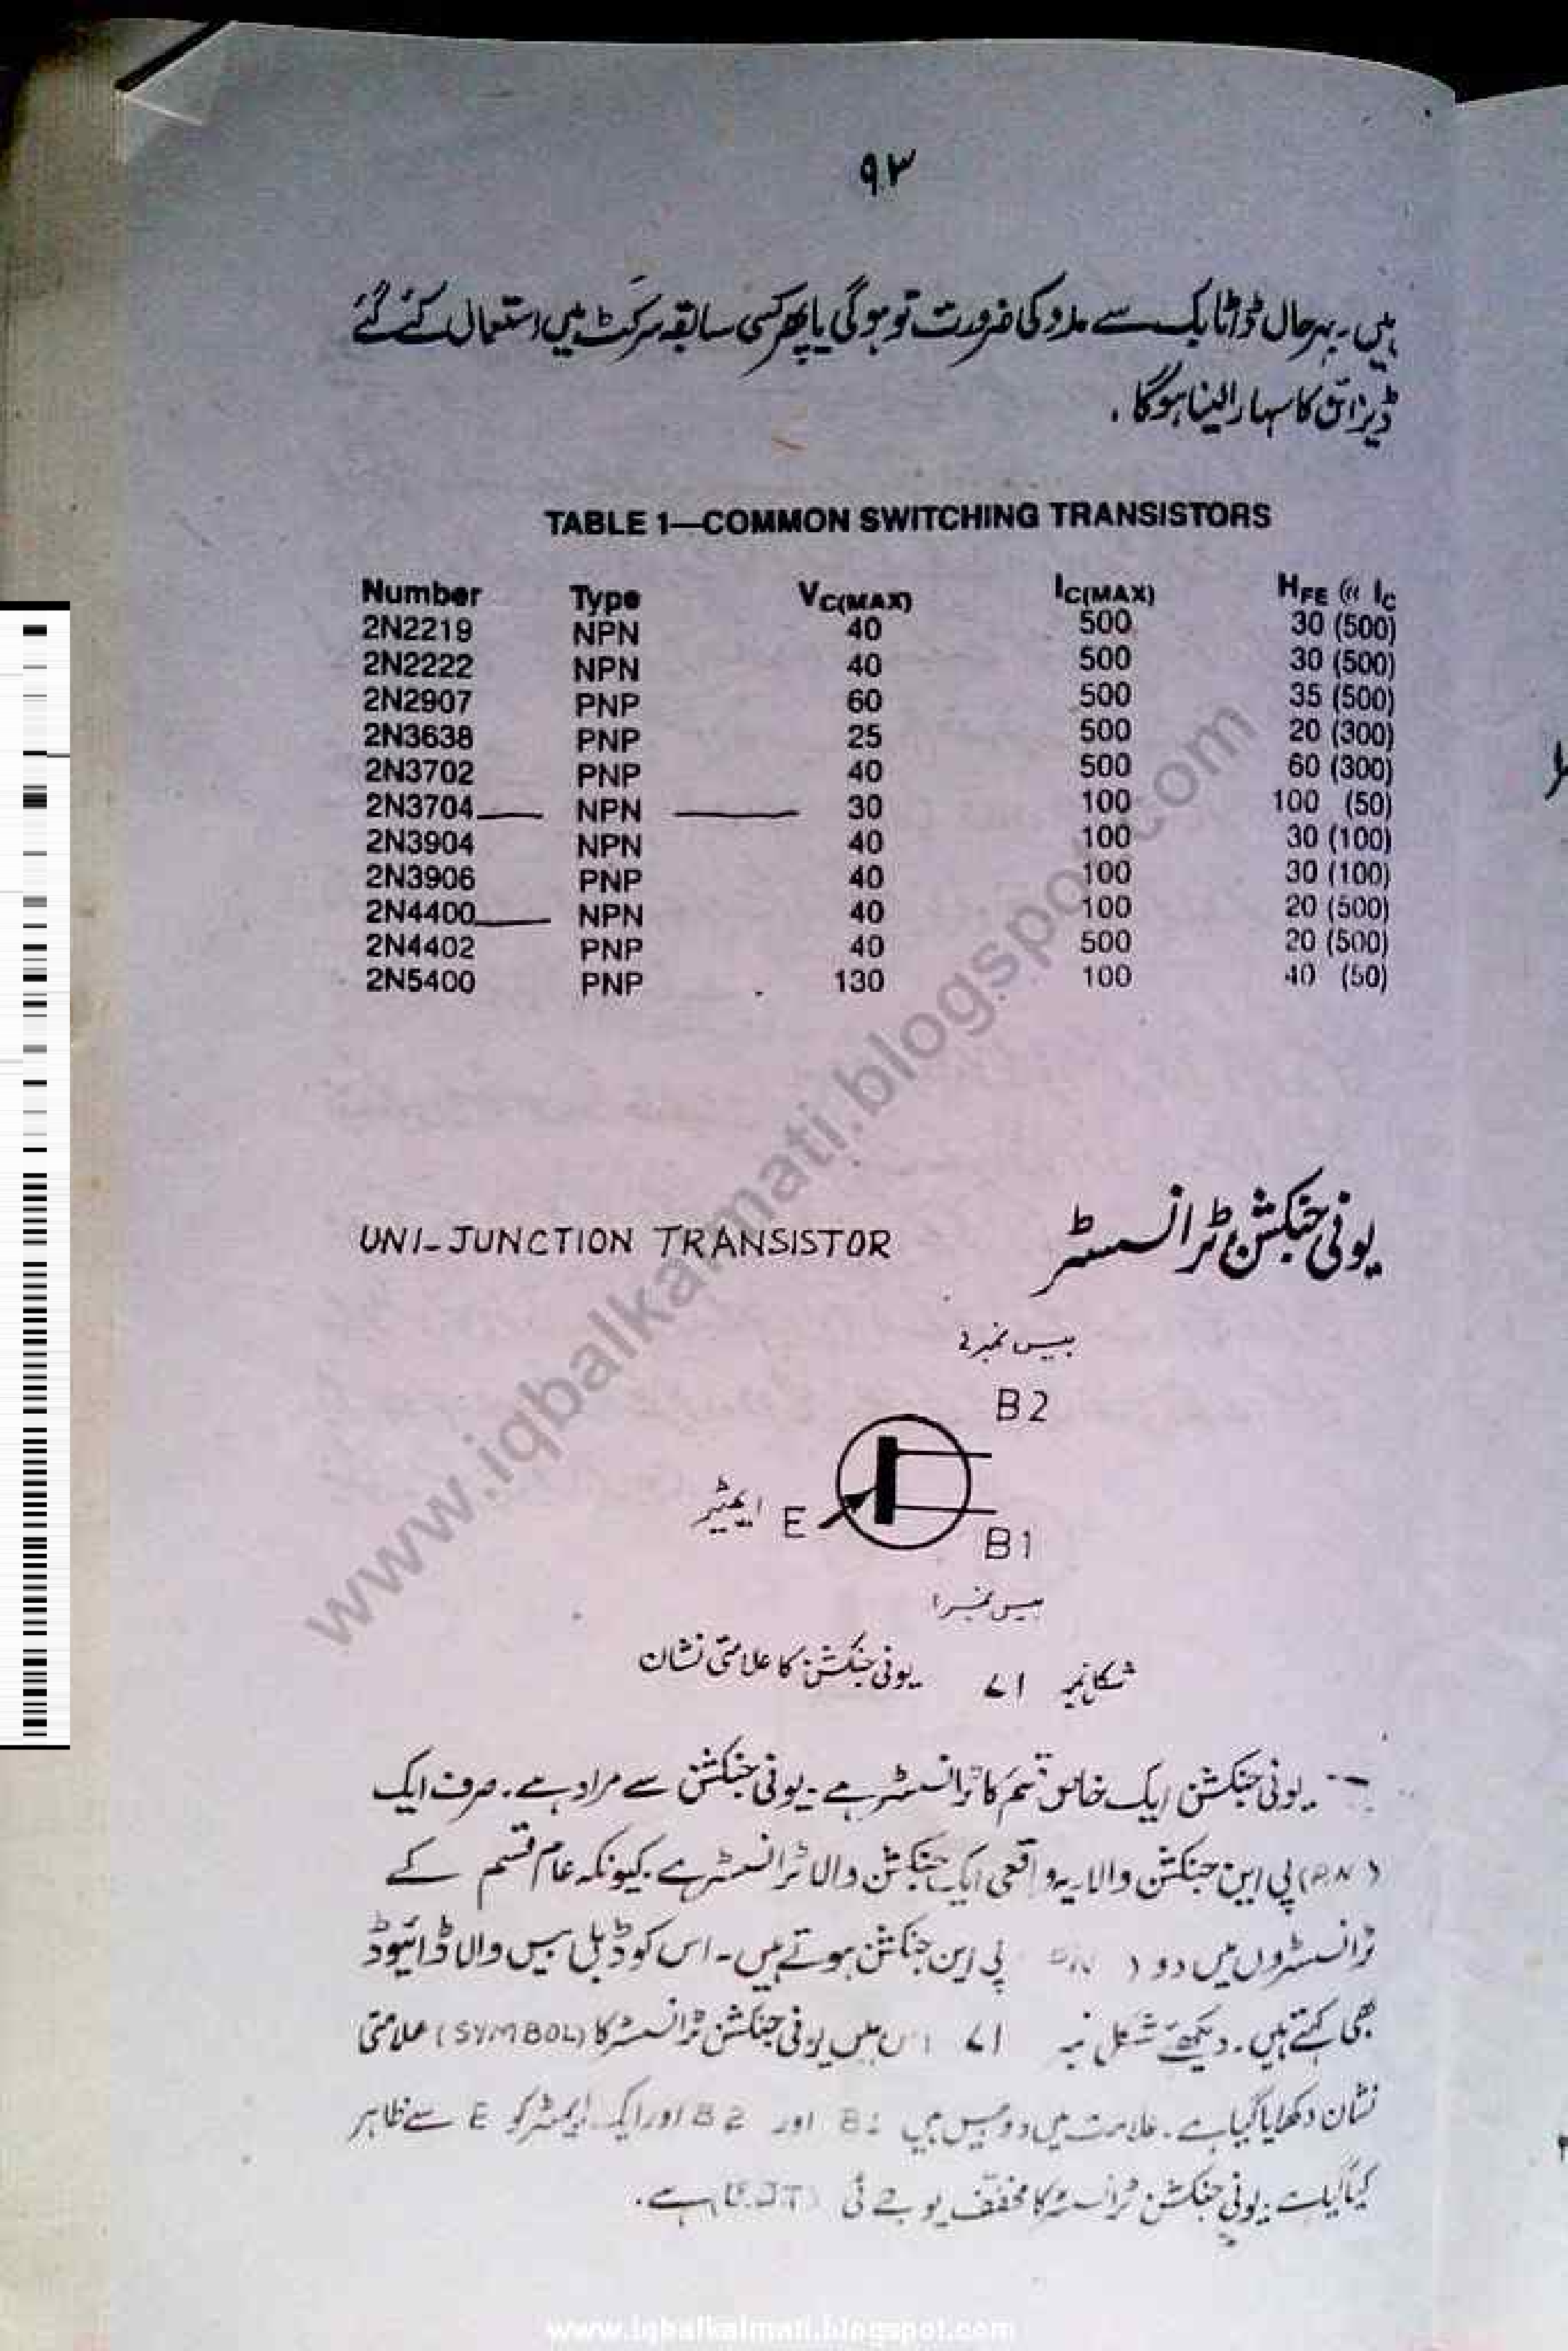 ۹۳
ہیں۔ بہرحال ڈاٹا بک سے مدد کی ضرورت تو ہوگی یا پھر کسی سابقہ سرکٹ میں استعمال کئے گئے
ڈیزائن کا سہارا لینا ہوگا۔
TABLE 1—COMMON SWITCHING TRANSISTORS
Number Type VC(MAX) IC(MAX) HFE @ IC
2N2219 NPN 40 500 30 (500)
2N2222 NPN 40 500 30 (500)
2N2907 PNP 60 500 35 (500)
2N3638 PNP 25 500 20 (300)
2N3702 PNP 40 500 60 (300)
2N3704 NPN 30 100 100 (50)
2N3904 NPN 40 100 30 (100)
2N3906 PNP 40 100 30 (100)
2N4400 NPN 40 100 20 (500)
2N4402 PNP 40 500 20 (500)
2N5400 PNP 130 100 40 (50)
یونی جنکشن ٹرانسسٹر UNI-JUNCTION TRANSISTOR
بیس نمبر 2
B2
ایمیٹر E
B1
بیس نمبر 1
شکل نمبر ۷۱ یونی جنکشن کا علامتی نشان
یونی جنکشن ایک خاص قسم کا ٹرانسسٹر ہے۔ یونی جنکشن سے مراد ہے۔ صرف ایک
(PN) پی این جنکشن والا۔ یہ واقعی ایک جنکشن والا ٹرانسسٹر ہے۔ کیونکہ عام قسم کے
ٹرانسسٹروں میں دو (PN) پی این جنکشن ہوتے ہیں۔ اس کو ڈبل بیس والا ڈائیوڈ
بھی کہتے ہیں۔ دیکھئے شکل نمبر ۷۱ اس میں یونی جنکشن ٹرانسسٹر کا (SYMBOL) علامتی
نشان دکھایا گیا ہے۔ علامت میں دو بیس ہیں B1 اور B2 اور ایک ایمیٹر کو E سے ظاہر
کیا گیا ہے۔ یونی جنکشن ٹرانسسٹر کا مخفف یو جے ٹی (UJT) ہے۔
www.iqbalkalmati.blogspot.com
www.iqbalkalmati.blogspot.com